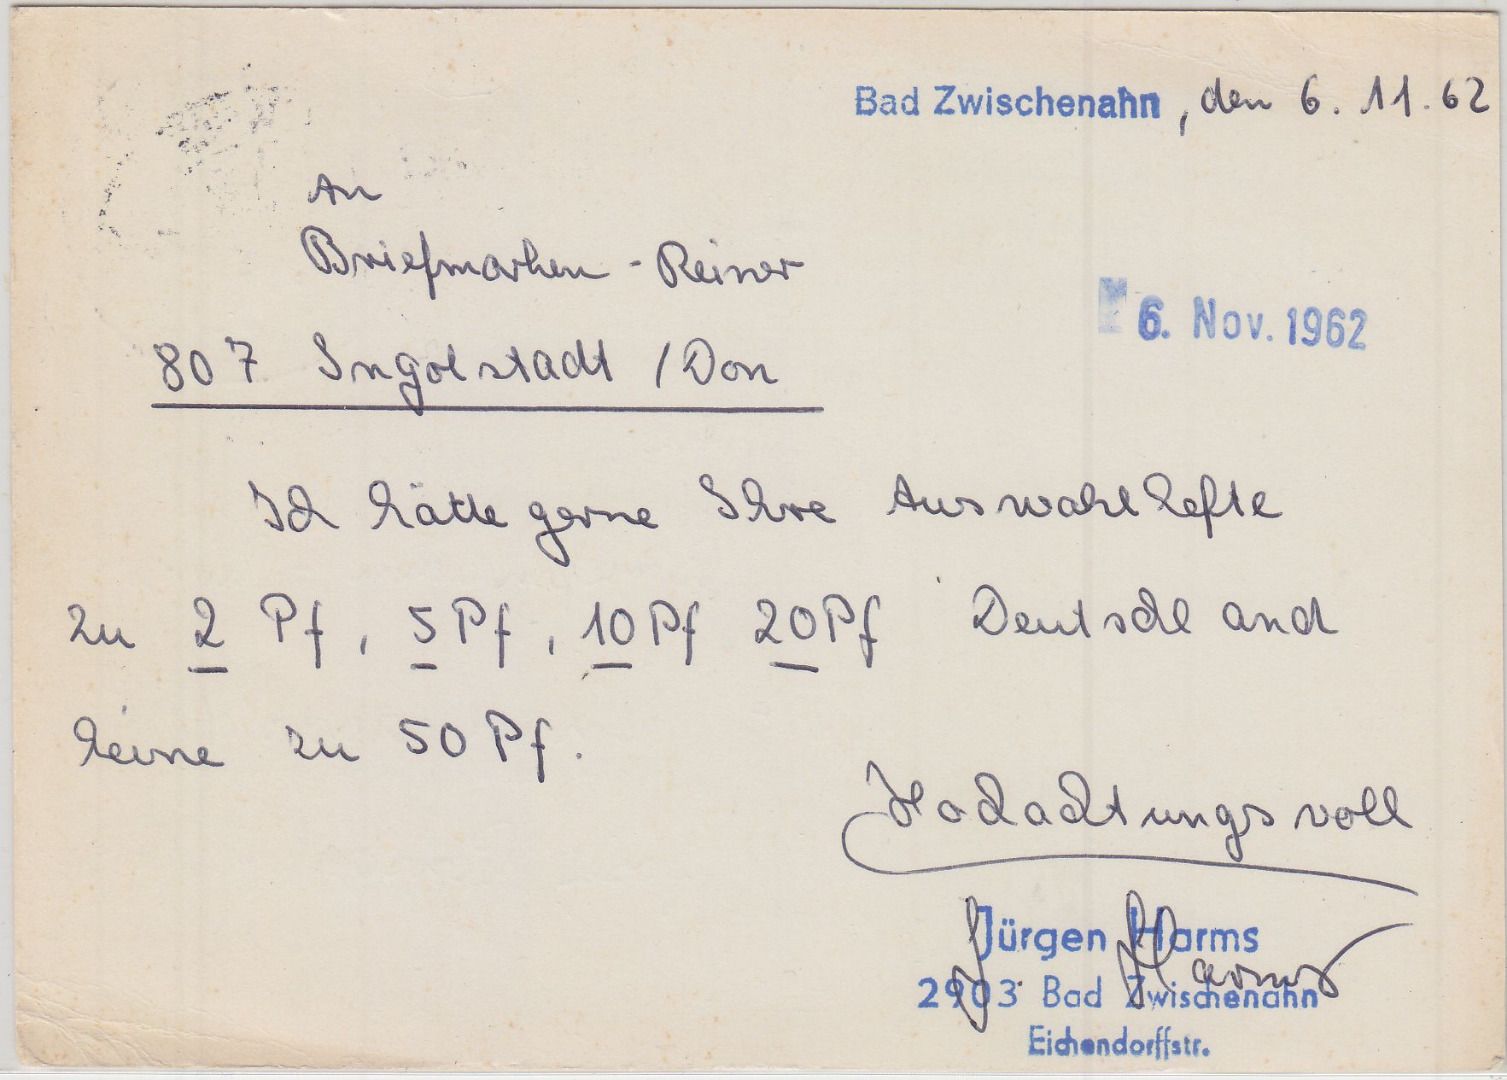 Bad Zwischenahn, den 6. 11. 62
An
Briefmarken-Reiner
6. Nov. 1962
807 Ingolstadt /Don
Ich hätte gerne Ihre Auswahlhefte
zu 2 Pf, 5 Pf, 10 Pf 20 Pf Deutschland
keine zu 50 Pf.
Hochachtungsvoll
Jürgen Harms
J. Harms
2903 Bad Zwischenahn
Eichendorffstr.